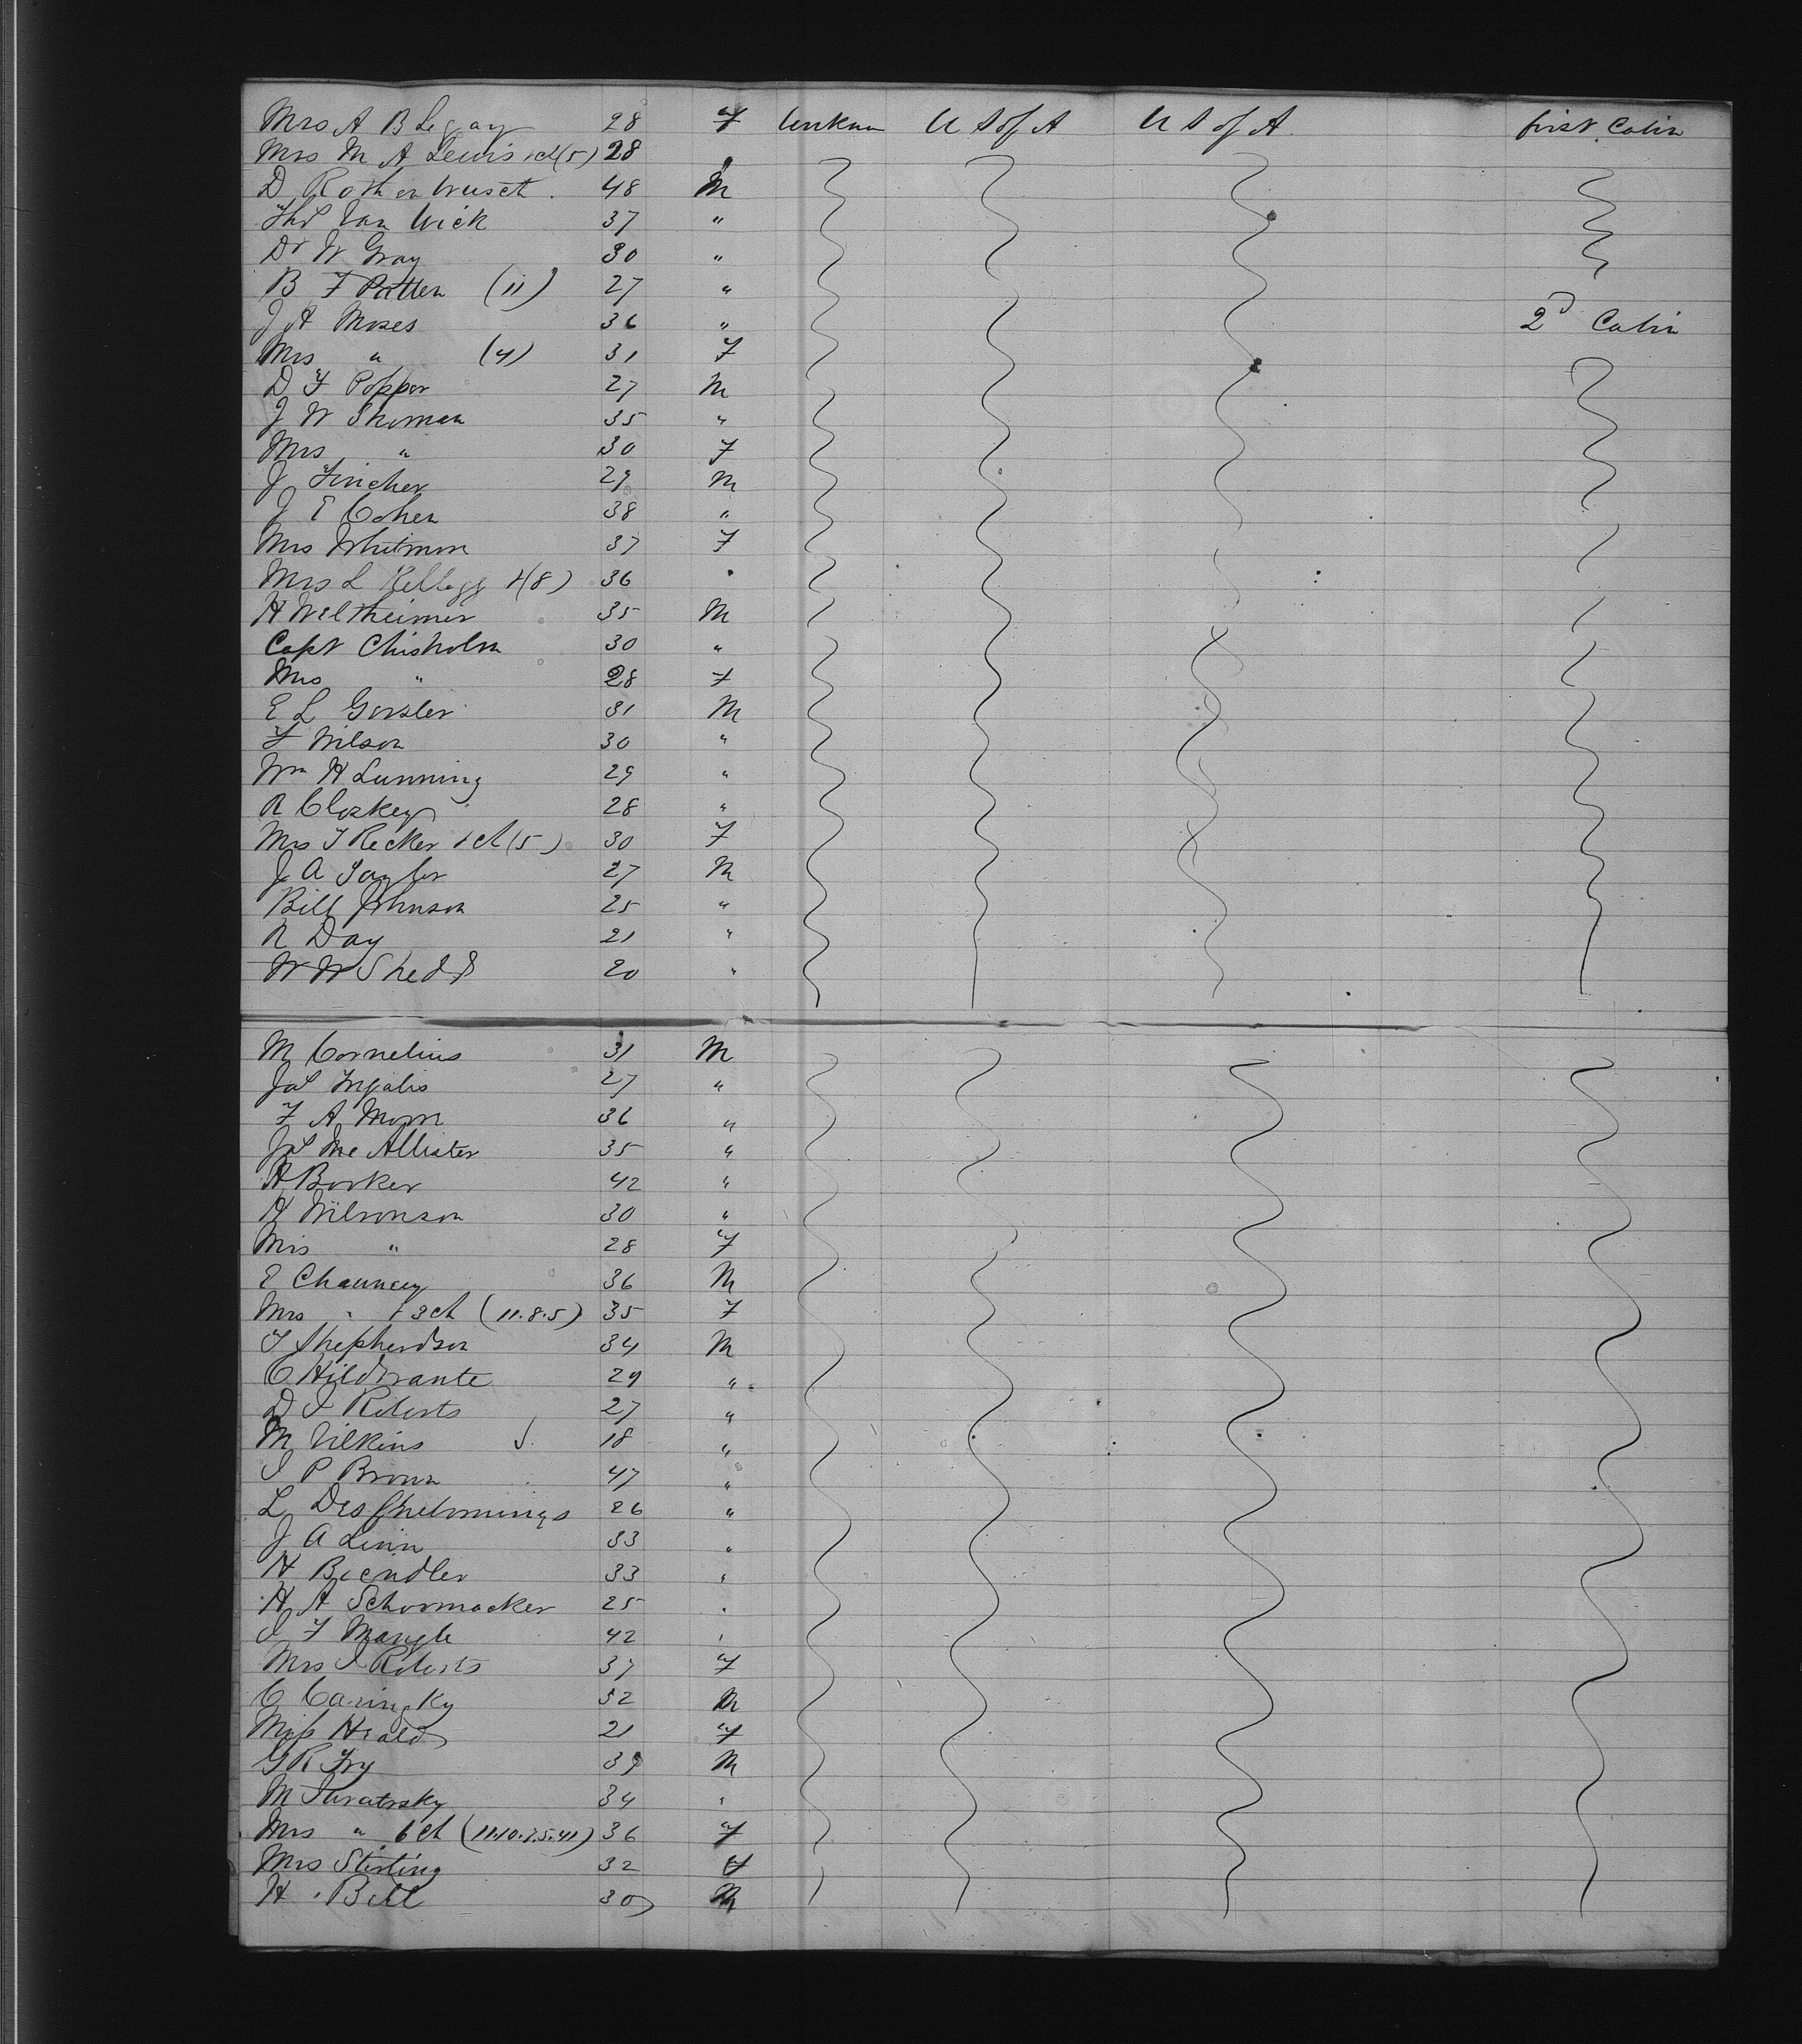 Mrs A B Legay 28 F Unknn U S of A U S of A first Cabin
Mrs M A Lewis 1 ch (5) 28 "
D Rothenbusch 48 M
Thos Van Wick 37 "
Dr W Gray 30 "
B F Patten (11) 27 "
J A Moses 36 " 2d Cabin
Mrs " (4) 31 F
D F Popper 27 M
J W Shoman 35 "
Mrs " 30 F
J Fincher 29 M
J E Cohen 38 "
Mrs Whitmore 37 F
Mrs L Kellogg (8) 36 "
H Weltheimer 35 M
Capt Chisholm 30 "
Mrs " 28 F
E L Gorsler 31 M
F Wilson 30 "
Wm H Lunning 29 "
R Closkey 28 "
Mrs T Recker 1 ch (5) 30 F
J A Taylor 27 M
Bill Johnson 25 "
R Day 21 "
W W Shedd 20 "
M Cornelius 31 M
Jas Ingalis 27 "
F A Morse 36 "
Jas Mc Allister 35 "
A Borker 42 "
H Wilsonson 30 "
Mrs " 28 F
E Chauncey 36 M
Mrs " & 3 ch (11.8.5) 35 F
T Shepherdson 34 M
C Hildbrante 29 "
D S Roberts 27 "
M Vilkins J. 18 "
S P Brown 47 "
L 26 "
J A Linn 33 "
H Biendler 33 "
H A Schormacker 25 "
S F Mangle 42 "
Mrs S Roberts 37 F
C 52 M
Miss Heald 21 F
G R Fry 39 M
M 34 "
Mrs " 6 ch (11.10.7.5.4.1) 36 F
Mrs Stirling 32 F
H Bell 30 M